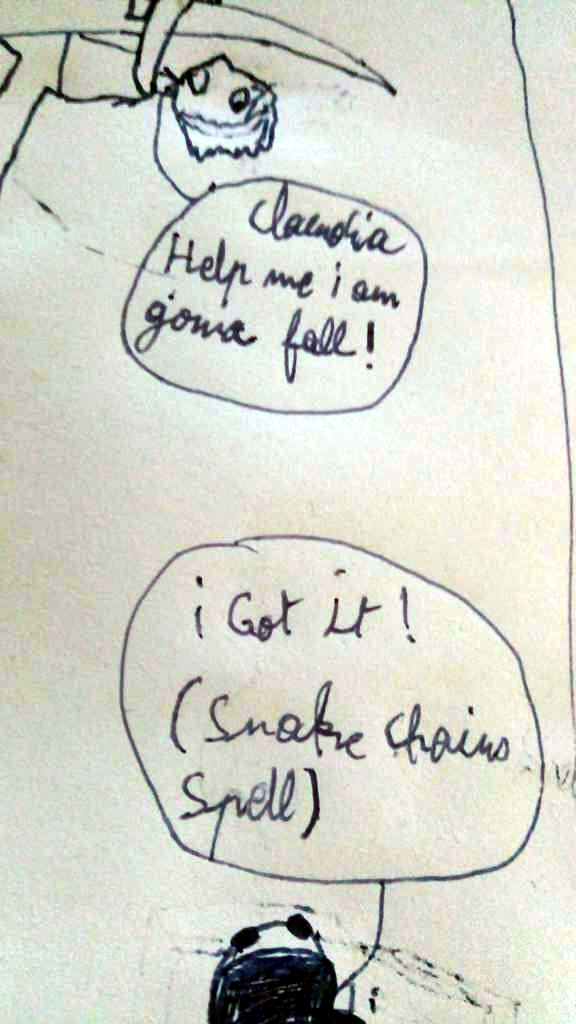 Claendia
Help me i am
gonna fall!
i Got it!
(Snake chains
Spell)